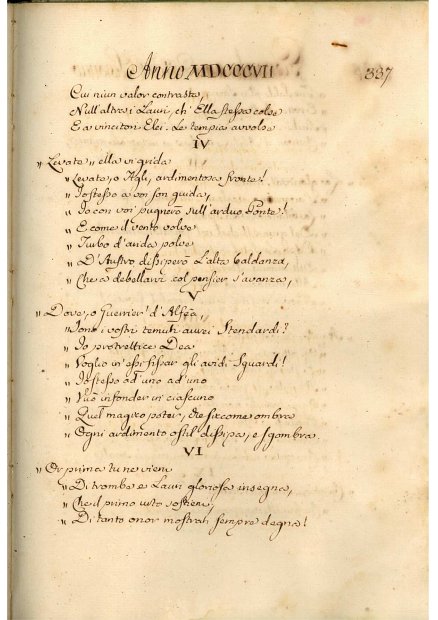 Anno MDCCCVII
337
Cui niun valor contrasta,
Null'altra i Lauri, ch'Ella stessa colse
E a vincitori Elei. Le tempia avvolse
IV
„ Levate „ ella vi grida
„ Levate, o Figli, ardimentosa fronte!
„ Io stessa a voi son guida,
„ Io con voi pugnerò sull'arduo Ponte!
„ E come il vento volve
„ Turbo d'arida polve
„ D'Austro dissiperò L'alta baldanza,
„ Che a debellarvi col pensier s'avanza,
V
„ Dove, o Guerrier' d'Alfea,
„ Sono i vostri temuti aurei Stendardi?
„ Io protrettice Dea
„ Voglio in essi fissar gli avidi Sguardi!
„ Io stessa ad uno ad uno
„ Vuò infonder in ciascuno
„ Quel magico poter, che siccome ombra
„ Ogni ardimento ostil dissipa, e sgombra
VI
„ Or prima tu ne vieni
„ Di trombe e Lauri gloriosa insegna,
„ Che il primo urto sostieni,
„ Di tanto onor mostrati sempre degna!